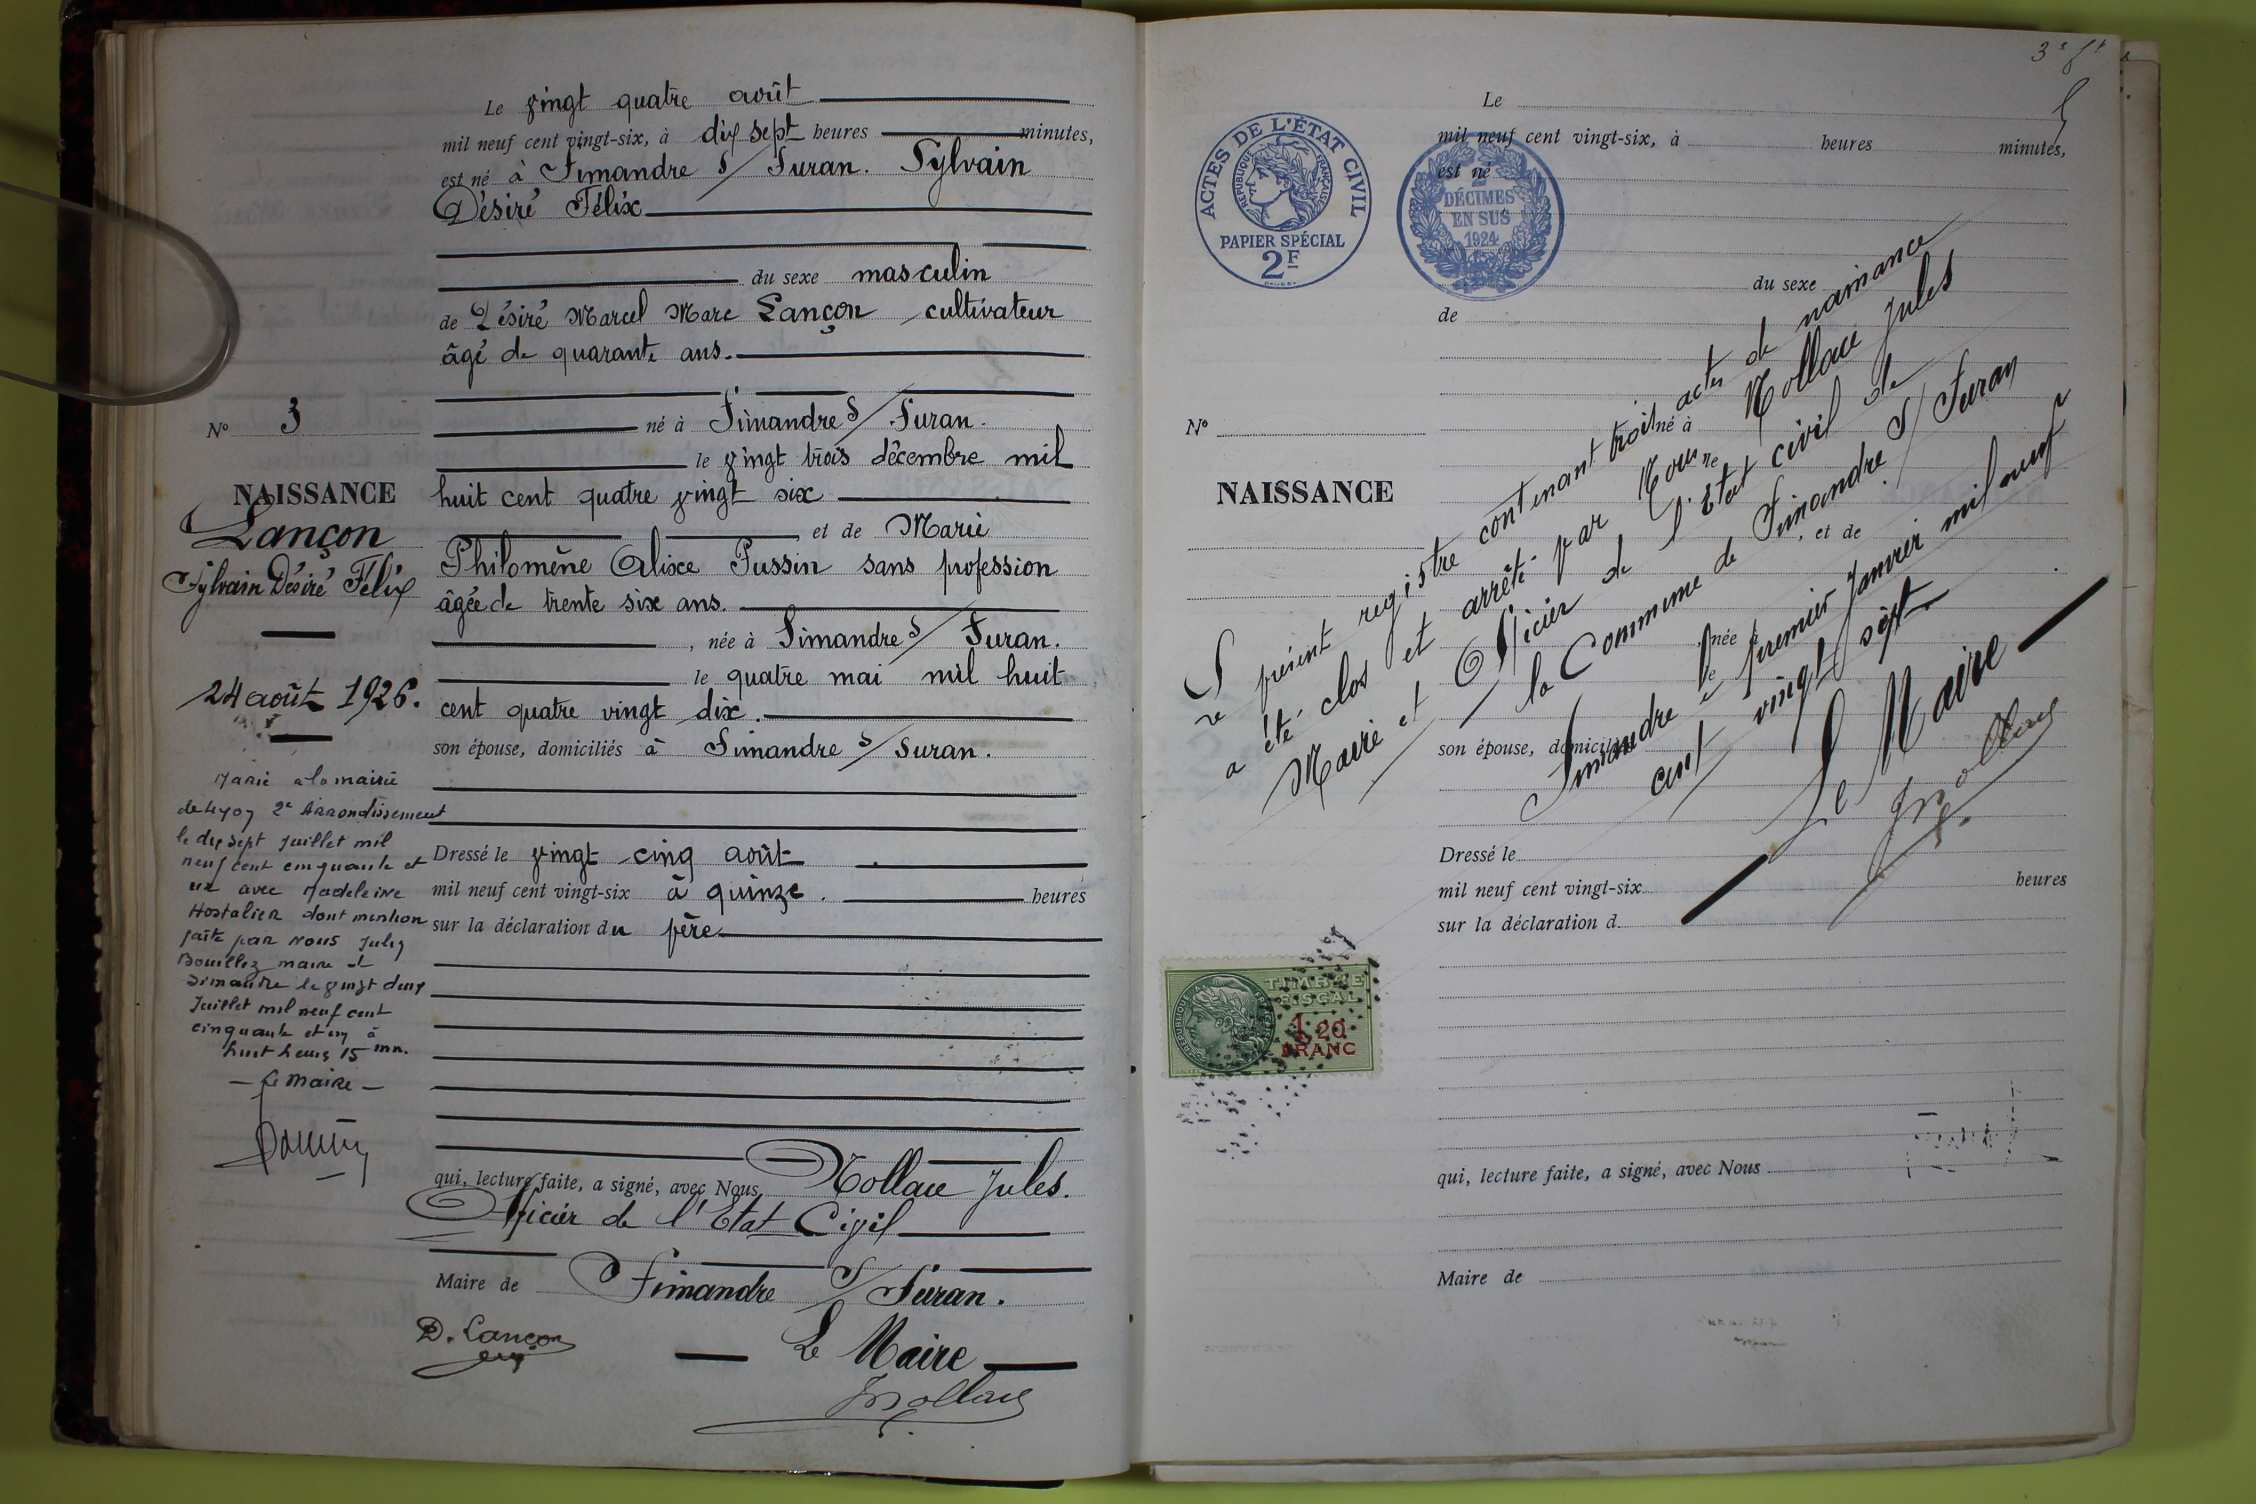 Le vingt quatre août
mil neuf cent vingt-six, à dix sept heures minutes,
est né à Simandre s/ Suran. Sylvain
Désiré Félix
du sexe masculin
de Désiré Marcel Marc Lançon cultivateur
âgé de quarante ans.
né à Simandre s/ Suran.
le vingt trois décembre mil
huit cent quatre vingt six
et de Marie
Philomène Alixe Pussin sans profession
âgée de trente six ans.
, née à Simandre s/ Suran.
le quatre mai mil huit
cent quatre vingt dix.
son épouse, domiciliés à Simandre s/ Suran.
Dressé le vingt cinq août
mil neuf cent vingt-six à quinze. heures
sur la déclaration du père
qui, lecture faite, a signé, avec Nous Nollace Jules.
Officier de l'Etat Civil
Maire de Simandre s/ Suran.
D. Lançon
Le Maire
N° 3
NAISSANCE
Lançon
Sylvain Désiré Félix
24 août 1926.
Marié à la mairie
de Lyon 2e Arrondissement
le dix sept Juillet mil
neuf cent cinquante et
un avec Madeleine
Hostalier dont mention
faite par nous
maire de
Simandre le vingt deux
Juillet mil neuf cent
cinquante et un à
huit heures 15 mn.
Le Maire
ACTES DE L'ÉTAT CIVIL
RÉPUBLIQUE FRANÇAISE
PAPIER SPÉCIAL
2F
2
DÉCIMES
EN SUS
1924
Le
mil neuf cent vingt-six, à heures minutes,
est né
du sexe
de
N°
né à
le
NAISSANCE
, et de
, née à
le
son épouse, domiciliés
Dressé le
mil neuf cent vingt-six heures
sur la déclaration d
qui, lecture faite, a signé, avec Nous
Maire de
Le présent registre contenant trois actes de naissance
a été clos et arrêté par Nous Nollace Jules
Maire et Officier de l'Etat civil de
la Commune de Simandre s/ Suran
Simandre le premier Janvier mil neuf
cent vingt sept
Le Maire
TIMBRE
FISCAL
1,20
FRANC